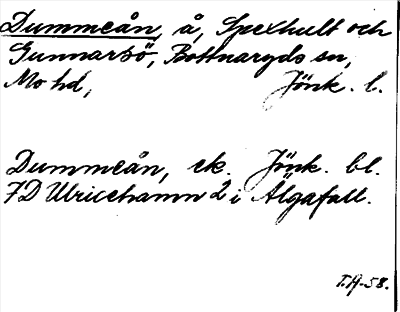 Dummeån, å, Spexhult och
Gunnarsö, Bottnaryds sn,
Mo hd, Jönk. l.
Dummeån, ek. Jönk. bl.
7D Ulricehamn 2 i Älgafall.
T.A-58.